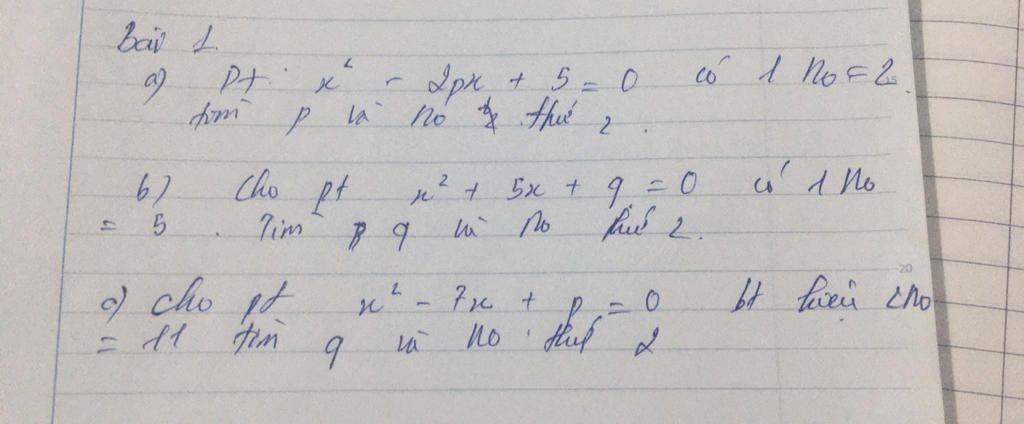 Bài 1.
a) Pt: x² - 2px + 5 = 0 có 1 No = 2.
tìm p và no thứ 2.
b) Cho pt x² + 5x + q = 0 có 1 No
= 5. Tìm q và No thứ 2.
c) cho pt x² - 7x + p = 0 bt hiệu 2No
= 11 tìm q và No thứ 2
15
20